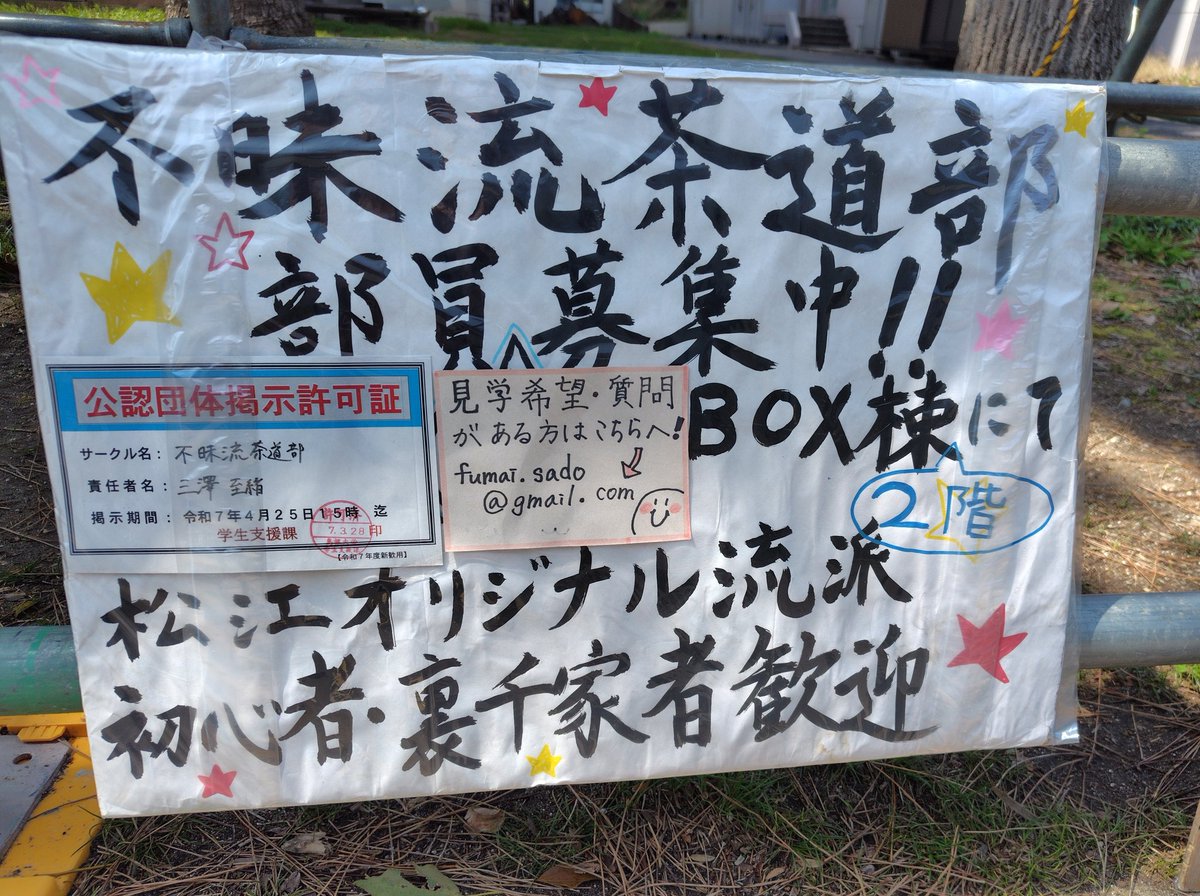 不昧流茶道部
部員募集中!!
BOX棟にて
2階
公認団体掲示許可証
サークル名： 不昧流茶道部
責任者名： 三澤 至緒
掲示期間： 令和7年4月25日15時 迄
学生支援課 印
7.3.28
【令和7年度新歓用】
見学希望・質問
がある方はこちらへ!
fumai.sado
@gmail.com
松江オリジナル流派
初心者・裏千家者歓迎